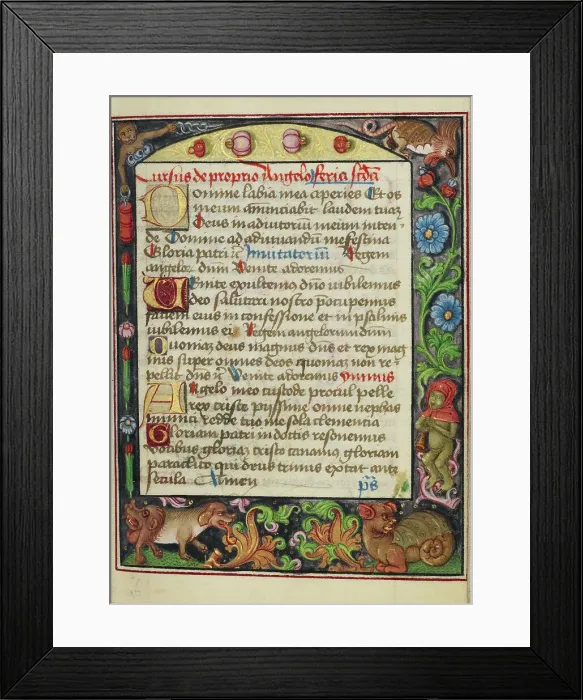 Cursus de proprio Angelo feria scda
Domine labia mea aperies Et os
meum annunciabit laudem tuaz
Deus in adiutoriū meum inten-
de Domine ad adiuuandū me festina
Gloria patri ℣ Inuitatoriū Regem
angelorz dnm Venite adoremus
Venite exultemus dno iubilemus
deo salutari nostro preocupemus
faciem eius in confessione et in psalmis
iubilemus ei Regem angelorum dnm
Quoniaz deus magnus dns et rex mag
nus super omnes deos quoniaz non re-
pellit dns ℣ Venite adoremus Ymnus
Angelo meo custode procul pelle
rex criste piissime omne nephas
inimici redde tuo me sola clementia
Gloriam patri indoctis resonemus
vocibus gloriaz cristo canamus gloriam
paraclito qui deus trinus extat ante
secula Amen ps